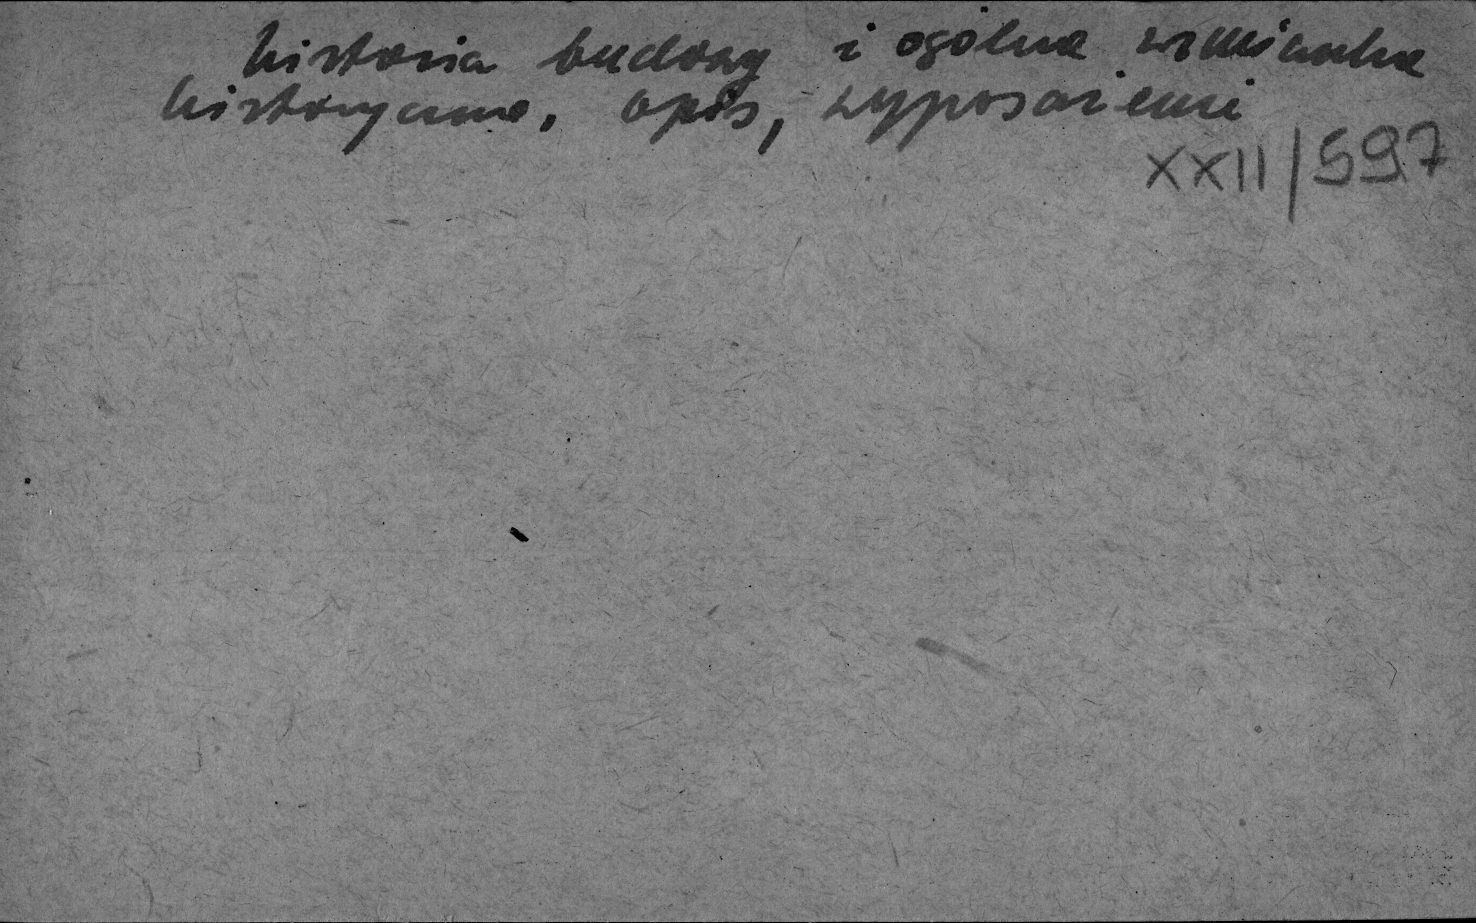 historia budowy i ogólna wzmianka
historyczna, opis, wyposażenie
XXII/597